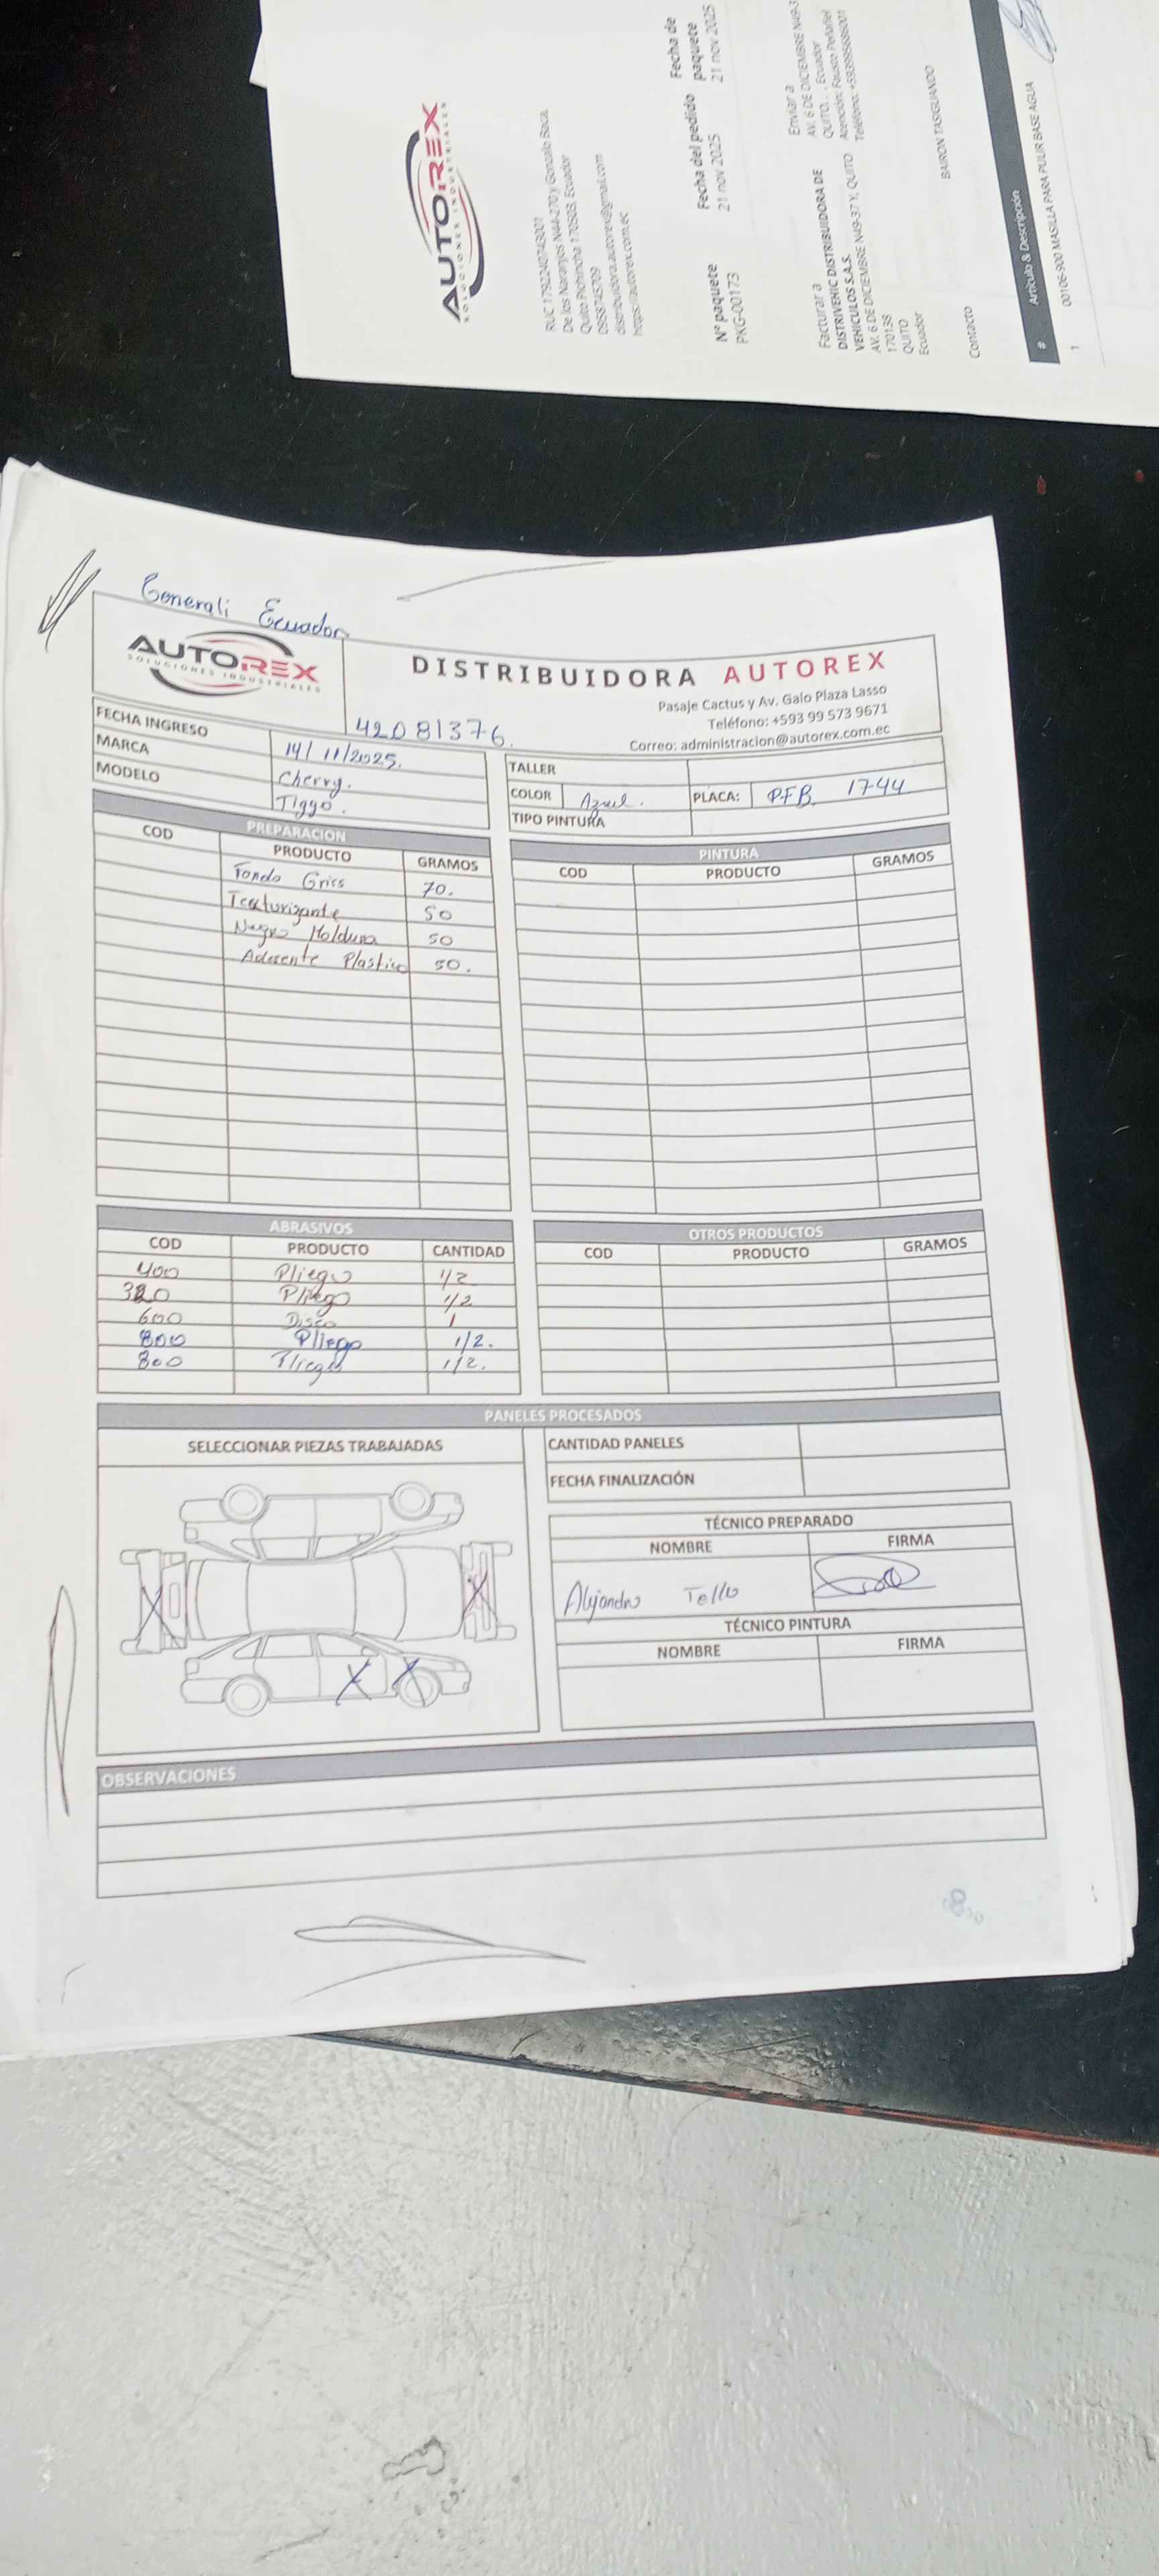 AUTOREX
SOLUCIONES INDUSTRIALES
RUC 1792240743001
De los Naranjos N44-270 y Gonzalo Boca,
Quito Pichincha 170503, Ecuador
0958745709
distribuidora.autorex@gmail.com
https://autorex.com.ec
Nº paquete Fecha del pedido Fecha de paquete
PKG-00173 21 nov 2025 21 nov 2025
Facturar a
DISTRIVEHIC DISTRIBUIDORA DE
VEHICULOS S.A.S.
AV. 6 DE DICIEMBRE N49-37 Y, QUITO
170138
QUITO
Ecuador
Enviar a
AV. 6 DE DICIEMBRE N49-3
QUITO, , , Ecuador
Atención: Fausto Peñafiel
Contacto BAIRON TASIGUANDO
# Artículo & Descripción
1 00106-900 MASILLA PARA PULIR BASE AGUA
Generali Ecuador.
AUTOREX
SOLUCIONES INDUSTRIALES
DISTRIBUIDORA AUTOREX
Pasaje Cactus y Av. Galo Plaza Lasso
Teléfono: +593 99 573 9671
Correo: administracion@autorex.com.ec
42081376.
FECHA INGRESO 14/11/2025.
MARCA Cherry.
MODELO Tiggo.
TALLER
COLOR Azul. PLACA: PFB 1744
TIPO PINTURA
PREPARACION
COD PRODUCTO GRAMOS
Fondo Griss 70.
Texturizante 50
Negro Moldura 50
Aderente Plastico 50.
PINTURA
COD PRODUCTO GRAMOS
ABRASIVOS
COD PRODUCTO CANTIDAD
400 Pliego 1/2
320 Pliego 1/2
600 Disco 1
800 Pliego 1/2.
800 Pliego 1/2.
OTROS PRODUCTOS
COD PRODUCTO GRAMOS
PANELES PROCESADOS
SELECCIONAR PIEZAS TRABAJADAS
CANTIDAD PANELES
FECHA FINALIZACIÓN
TÉCNICO PREPARADO
NOMBRE FIRMA
Alejandro Tello
TÉCNICO PINTURA
NOMBRE FIRMA
OBSERVACIONES